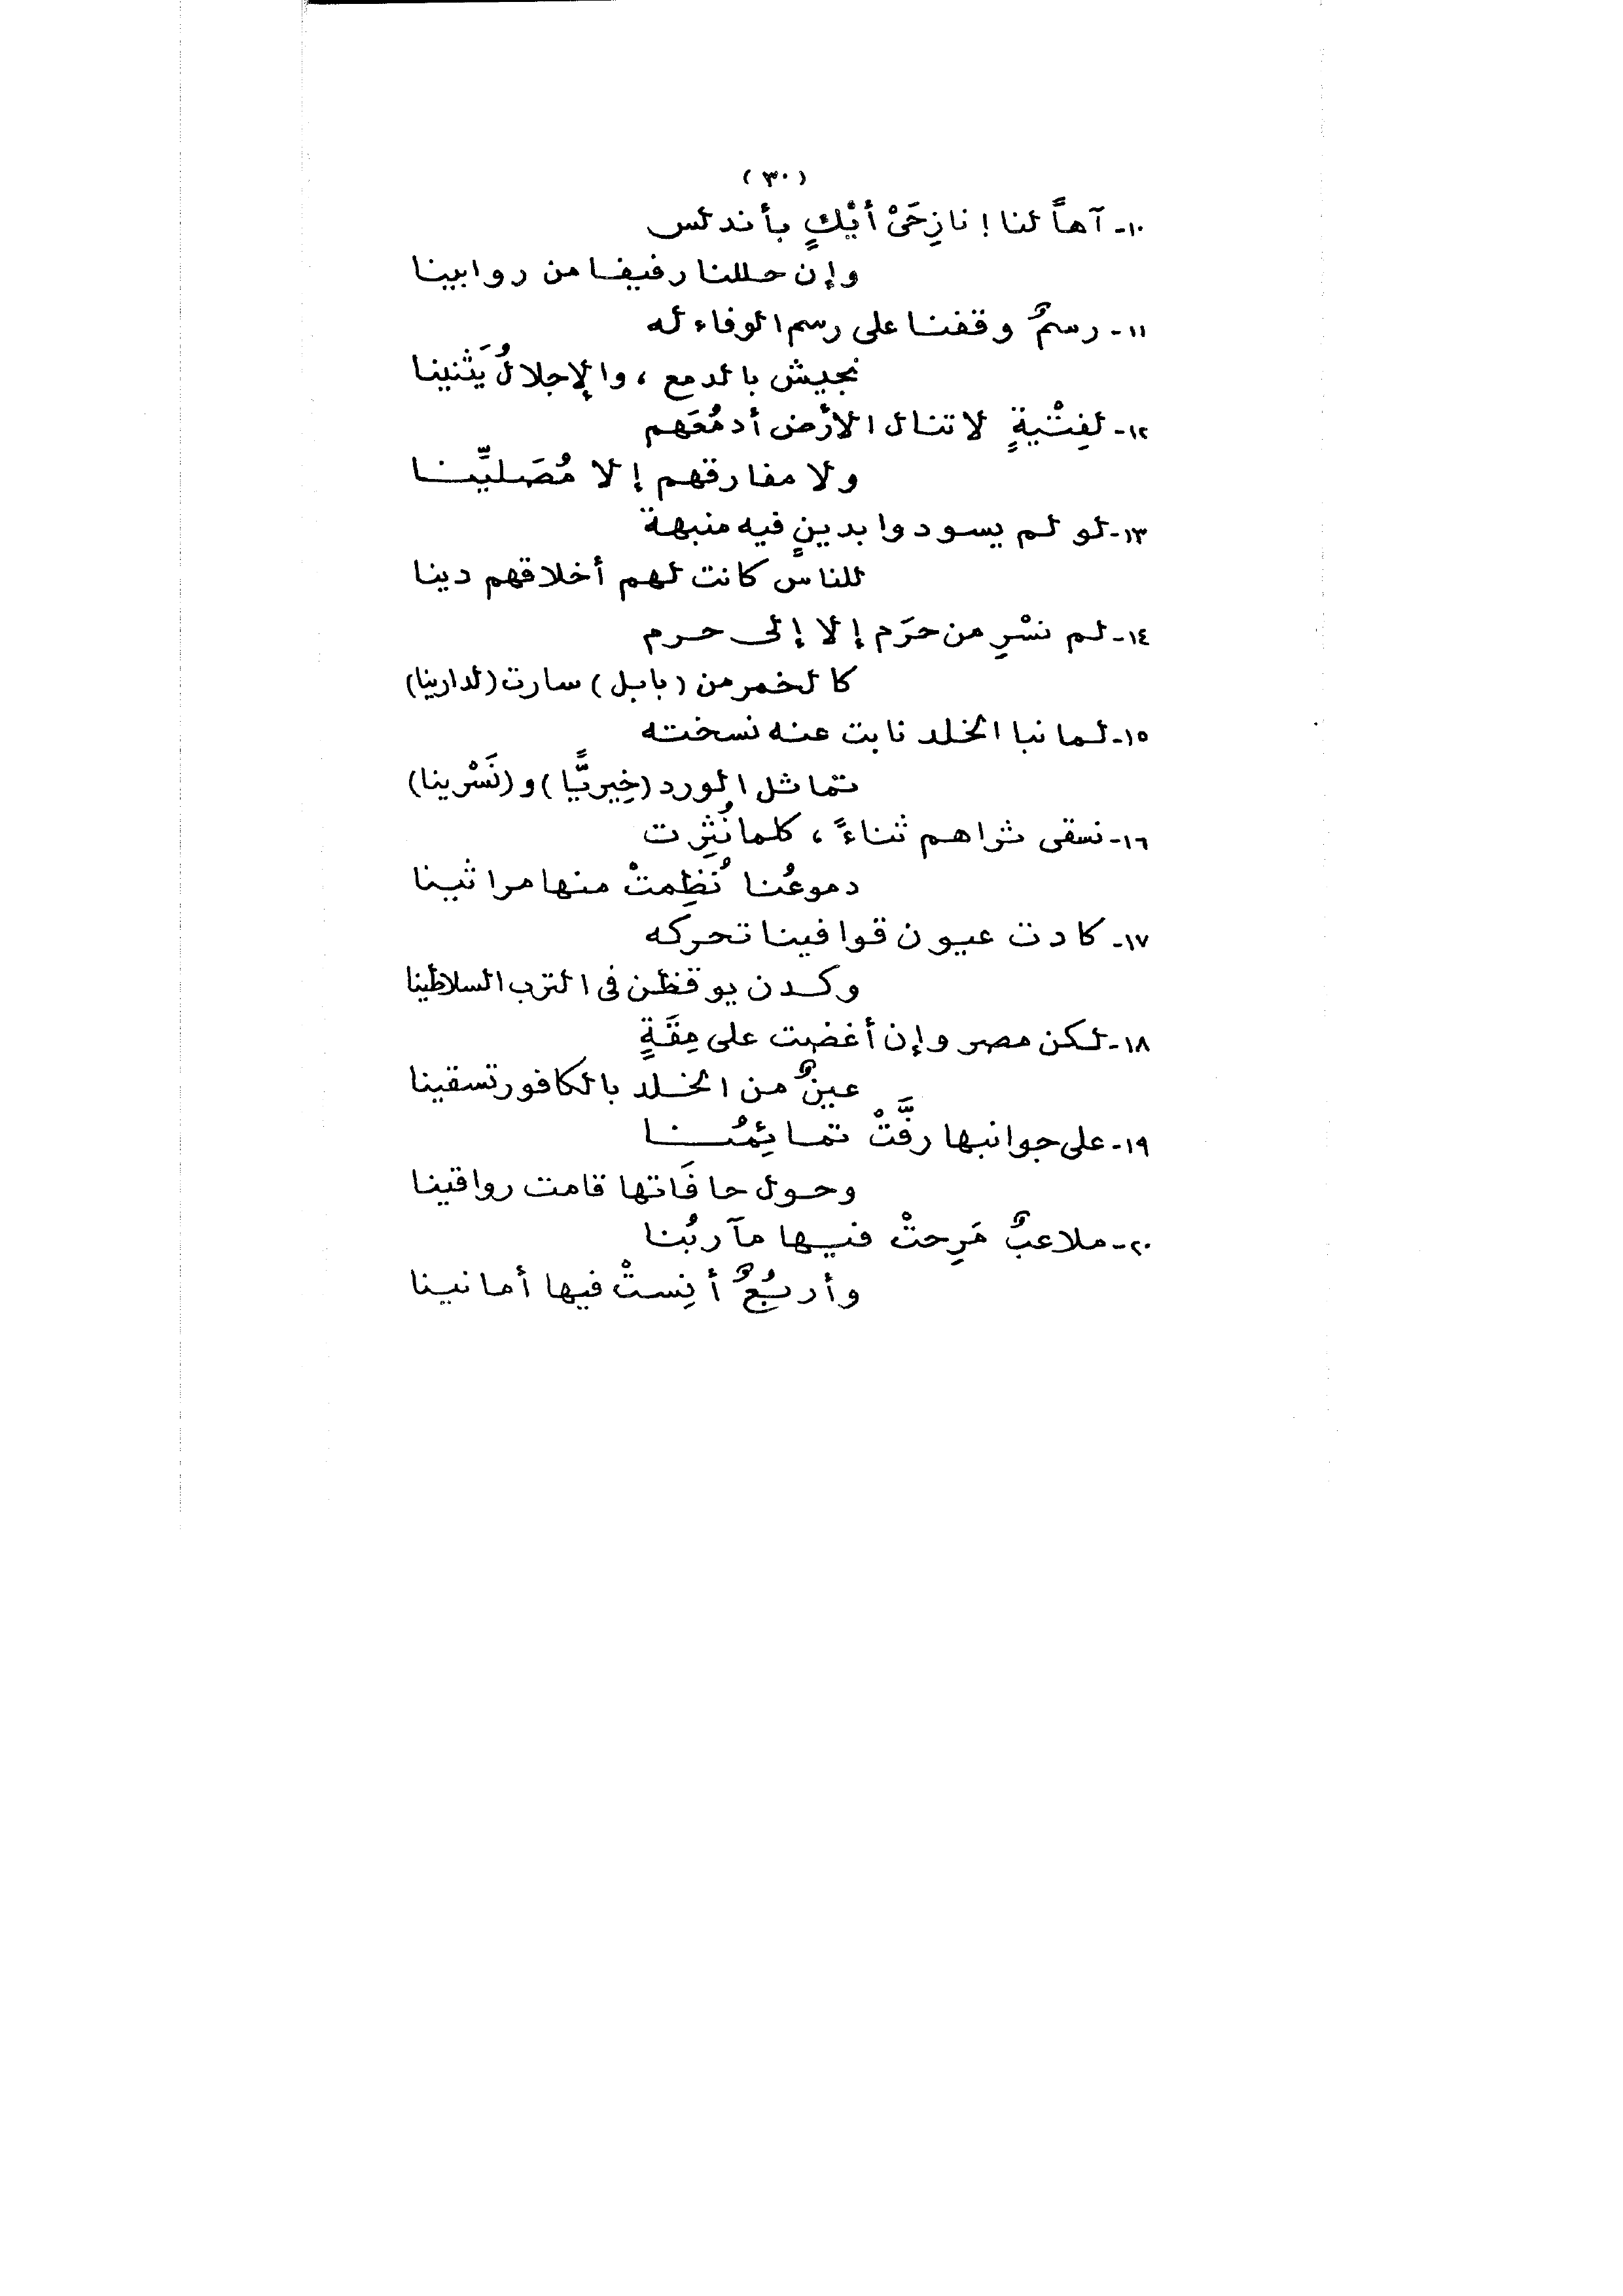 (٣٠)
١٠- آهاً لنا! نازِحَىْ أيْكٍ بأندلس
وإن حللنا رفيفا من روابينا
١١- رسمٌ وقفنا على رسم الوفاء له
نجيش بالدمع، والإجلالُ يَثنينا
١٢- لفِتْيةٍ لا تنال الأرْض أدمُعَهم
ولا مفارقهم إلا مُصَليِّنا
١٣- لو لم يسودوا بدينٍ فيه منبهة
للناس كانت لهم أخلاقهم دينا
١٤- لم نسْرِ من حرَم إلا إلى حرم
كالخمر من (بابل) سارت (لدارينا)
١٥- لما نبا الخلد نابت عنه نسخته
تماثل الورد (خِيريًّا) و(نَسْرينا)
١٦- نسقى ثراهم ثناءً، كلما نُثِرت
دموعُنا نُظِمتْ منها مراثينا
١٧- كادت عيون قوافينا تحركه
وكدن يوقظن فى الترب السلاطينا
١٨- لكن مصر وإن أغضت على مِقَةٍ
عينٌ من الخلد بالكافور تسقينا
١٩- على جوانبها رفَّتْ تمائِمُنا
وحول حافَاتها قامت رواقينا
٢٠- ملاعبٌ مَرِحتْ فيها مآربُنا
وأربُعٌ أنِستْ فيها أمانينا